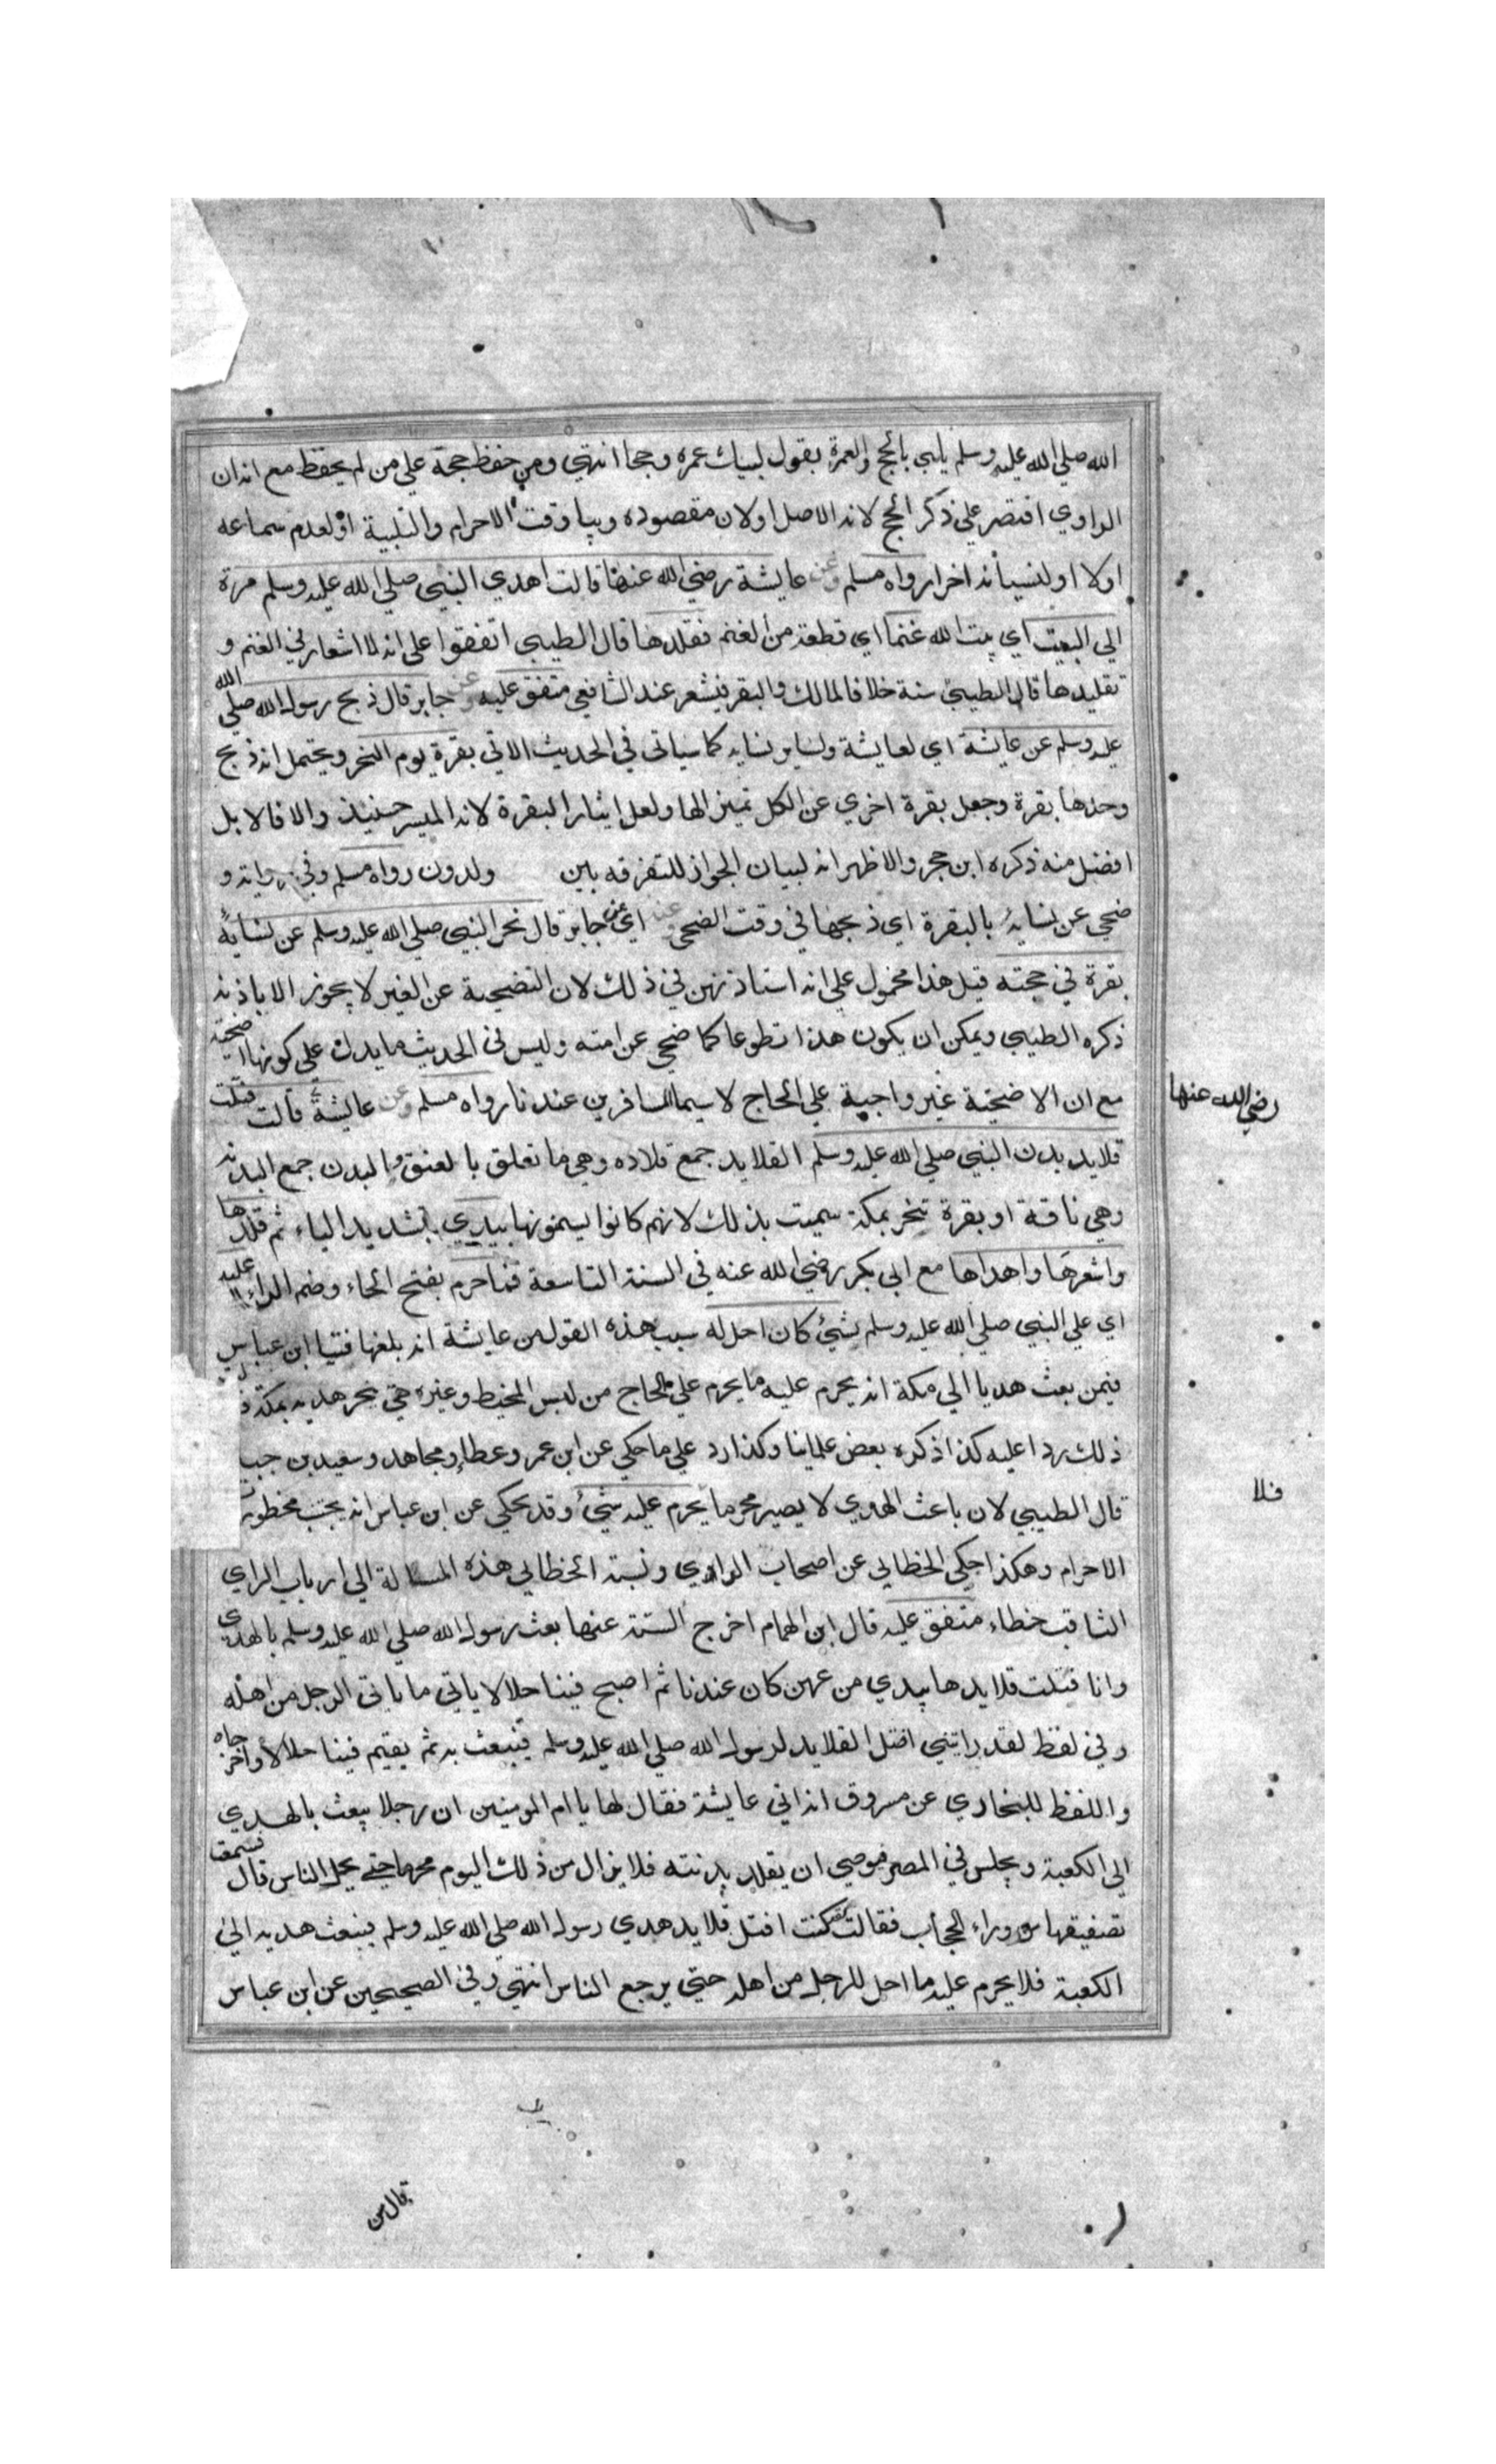 الله صلي الله عليه وسلم يلبي بالحج والعمرة يقول لبيك عمره وحجا انتهي ومن حفظ حجة علي من لم يحفظ مع انه ان
الراوي اقتصر علي ذكر الحج لانه الاصل اولان مقصوده وبيا وقت الاحرام والتلبية او لعدم سماعه
اولا او لنسيانه اخرا رواه مسلم وعن عايشة رضي الله عنها قالت اهدي النبي صلي الله عليه وسلم مرة
الي البيت اي بيت الله غنما اي قطعة من الغنم فقلدها قال الطيبي اتفقوا علي انه لا اشعار في الغنم و
تقليدها قال الطيبي سنة خلافا لمالك والبقر يشعر عند الشافعي متفق عليه وعن جابر قال ذبح رسول الله صلي الله
عليه وسلم عن عايشة اي لعايشة ولساير نسايه كما سياتي في الحديث الاتي بقرة يوم النحر ويحتمل انه ذبح
وحدها بقرة وجعل بقرة اخري عن الكل تميزا لها ولعل ايثار البقرة لانه الميسر حينيذ والا فالابل
افضل منه ذكره ابن حجر والاظهر انه لبيان الجواز للتفرقه بين ولدون رواه مسلم وفي رواية و
ضحي عن نسايه بالبقرة اي ذبحها في وقت الضحي وعنه اي عن جابر قال نحر النبي صلي الله عليه وسلم عن نسايه
بقرة في حجته قيل هذا محمول علي انه استاذنهن في ذلك لان التضحية عن الغير لا يجوز الا باذنه
ذكره الطيبي ويمكن ان يكون هذا تطوعا كما ضحي عن امته وليس في الحديث ما يدل علي كونها اضحية
مع ان الاضحية غير واجبة علي الحاج لا سيما المسافرين عندنا رواه مسلم وعن عايشة قالت فتلت
رضي الله عنها
قلايد بدن النبي صلي الله عليه وسلم القلايد جمع قلاده وهي ما تعلق بالعنق والبدن جمع البدنه
وهي ناقة او بقرة تنحر بمكة سميت بذلك لانهم كانوا يسمنونها بيدي بتشديد الياء ثم قلدها
واشعرها واهداها مع ابي بكر رضي الله عنه في السنة التاسعة فما حرم بفتح الحاء وضم الراء عليه
اي علي النبي صلي الله عليه وسلم شيء كان احل له سبب هذه القول من عايشة انه بلغها فتيا ابن عباس
فيمن بعث هديا الي مكة انه يحرم عليه ما يحرم علي الحاج من لبس المخيط وغيره حتي ينحر هديه بمكة
ذلك ردا عليه كذا ذكره بعض علماينا وكذا رد علي ما حكي عن ابن عمر وعطاء ومجاهد وسعيد بن جب
قال الطيبي لان باعث الهدي لا يصير محرما يحرم عليه شيء وقد يحكي عن ابن عباس انه يجتنب محظورت
فلا
الاحرام وهكذا حكي الخطابي عن اصحاب الراوي ونسبة الخطابي هذه المسالة الي ارباب الراي
الثاقب خطاء متفق عليه قال ابن الهمام اخرج الستة عنها بعث رسول الله صلي الله عليه وسلم بالهدي
وانا فتلت قلايدها بيدي من عهن كان عندنا ثم اصبح فينا حلالا ياتي ما ياتي الرجل من اهله
وفي لفظ لقد رايتني افتل القلايد لرسول الله صلي الله عليه وسلم فيبعث به ثم يقيم فينا حلالا واخرجاه
واللفظ للبخاري عن مسروق انه اتي عايشة فقال لها يا ام المومنين ان رجلا يبعث بالهدي
الي الكعبة ويجلس في المصر فيوصي ان يقلد بدنته فلا يزال من ذلك اليوم محرما حتي يحل الناس قال فسمعت
تصفيقها من وراء الحجاب فقالت لقد كنت افتل قلايد هدي رسول الله صلي الله عليه وسلم فيبعث هديه الي
الكعبة فلا يحرم عليه ما احل للرجل من اهله حتي يرجع الناس انتهي وفي الصحيحين عن ابن عباس